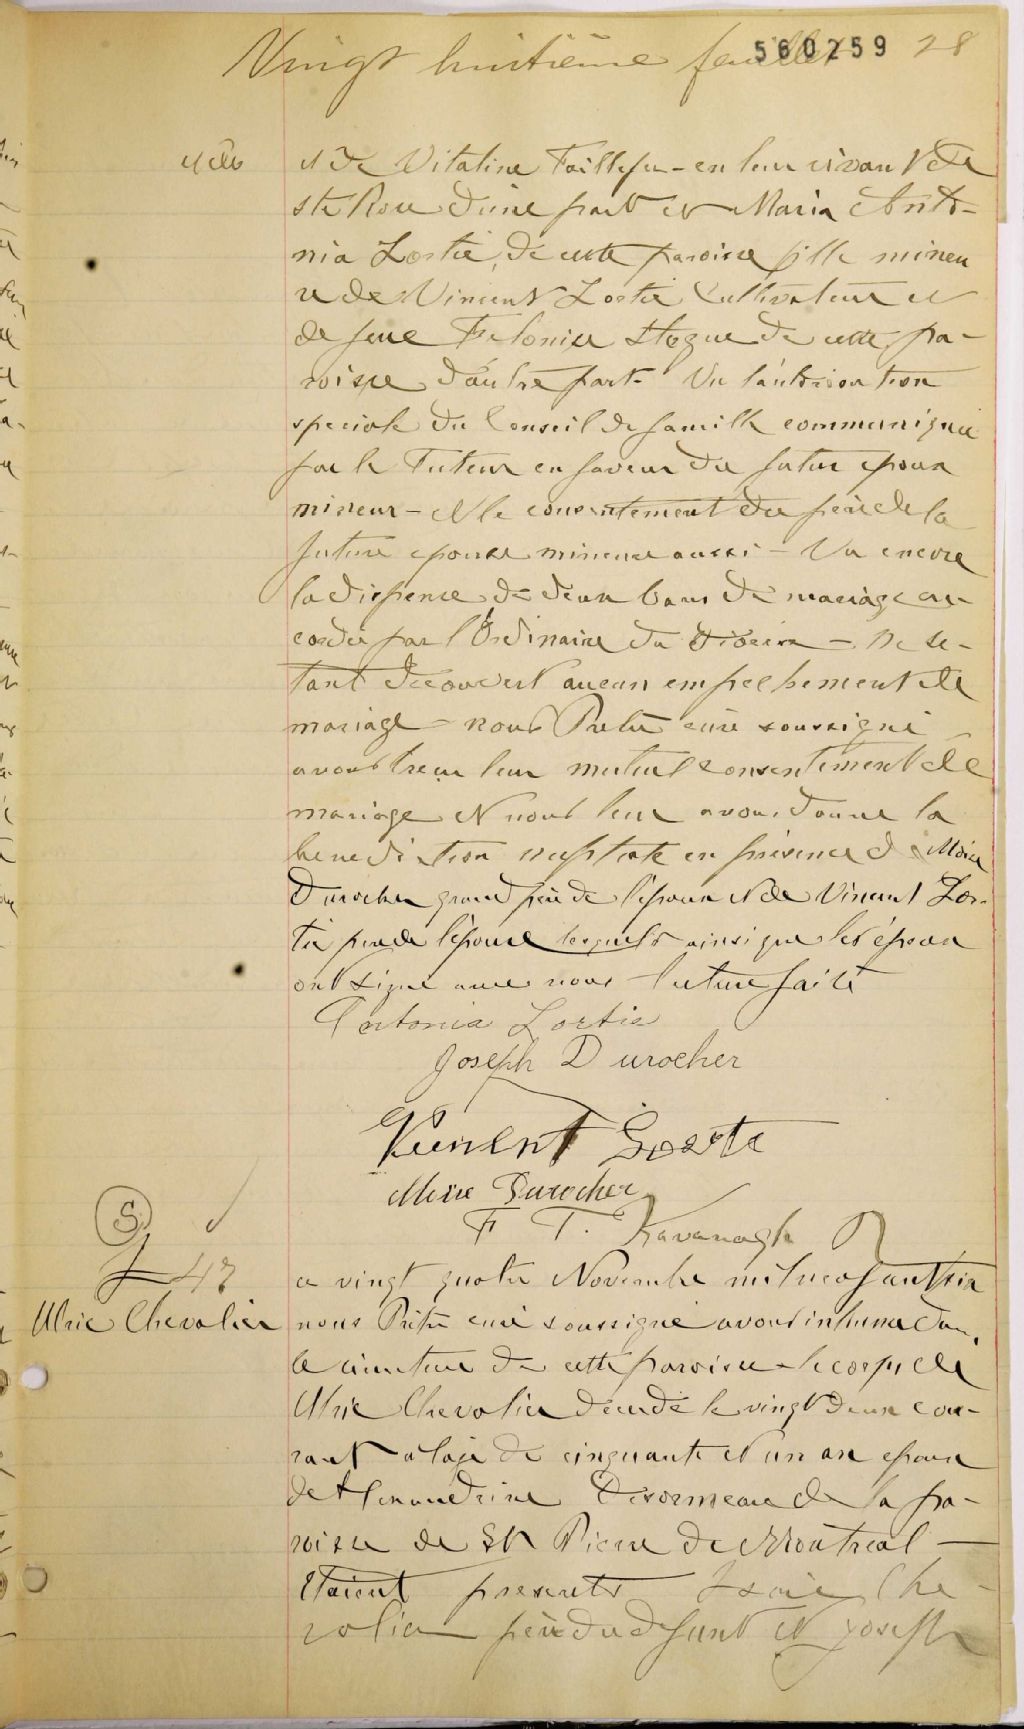 Vingt huitième feuillet 560259 28
et de Vitaline Taillefer - en leur vivant de
Ste Rose d'une part et Maria Anto-
nia Lortie, de cette paroisse fille mineu
re de Vincent Lortie Cultivateur et
de feue de cette pa-
roisse d'autre part. Vu l'autorisation
speciale du Conseil de famille communiquée
par le Tuteur en faveur du futur epoux
mineur - et le consentement du père de la
future epouse mineure aussi - Vu encore
la dispense de deux bans de mariage ac-
cordée par l'Ordinaire du Diocèse - Ne se-
tant découvert aucun empechement de
mariage - nous Pretre curé soussigné
avons reçu leur mutuel consentement de
mariage et nous leur avons donné la
benediction nuptiale en présence de Moise
Durocher grand père de l'epoux et de Vincent Lor-
tie père de l'épouse lesquels ainsi que les époux
ont signé avec nous lecture faite
Antonia Lortie
Joseph Durocher
Vincent Lortie
Moise Durocher
F T. Kavanagh
S
47
Ulric Chevalier
Le vingt quatre Novembre mil neuf cent six
nous Prêtre curé soussigné avons inhumé dans
le cimetière de cette paroisse le corps de
Ulric Chevalier décédé le vingt deux cou-
rant a l'age de cinquante et un an epoux
de Alexandrine Desormeau de la pa-
roisse de St Pierre de Montreal -
Etaient presents Isaie Che-
valier père du defunt et Joseph